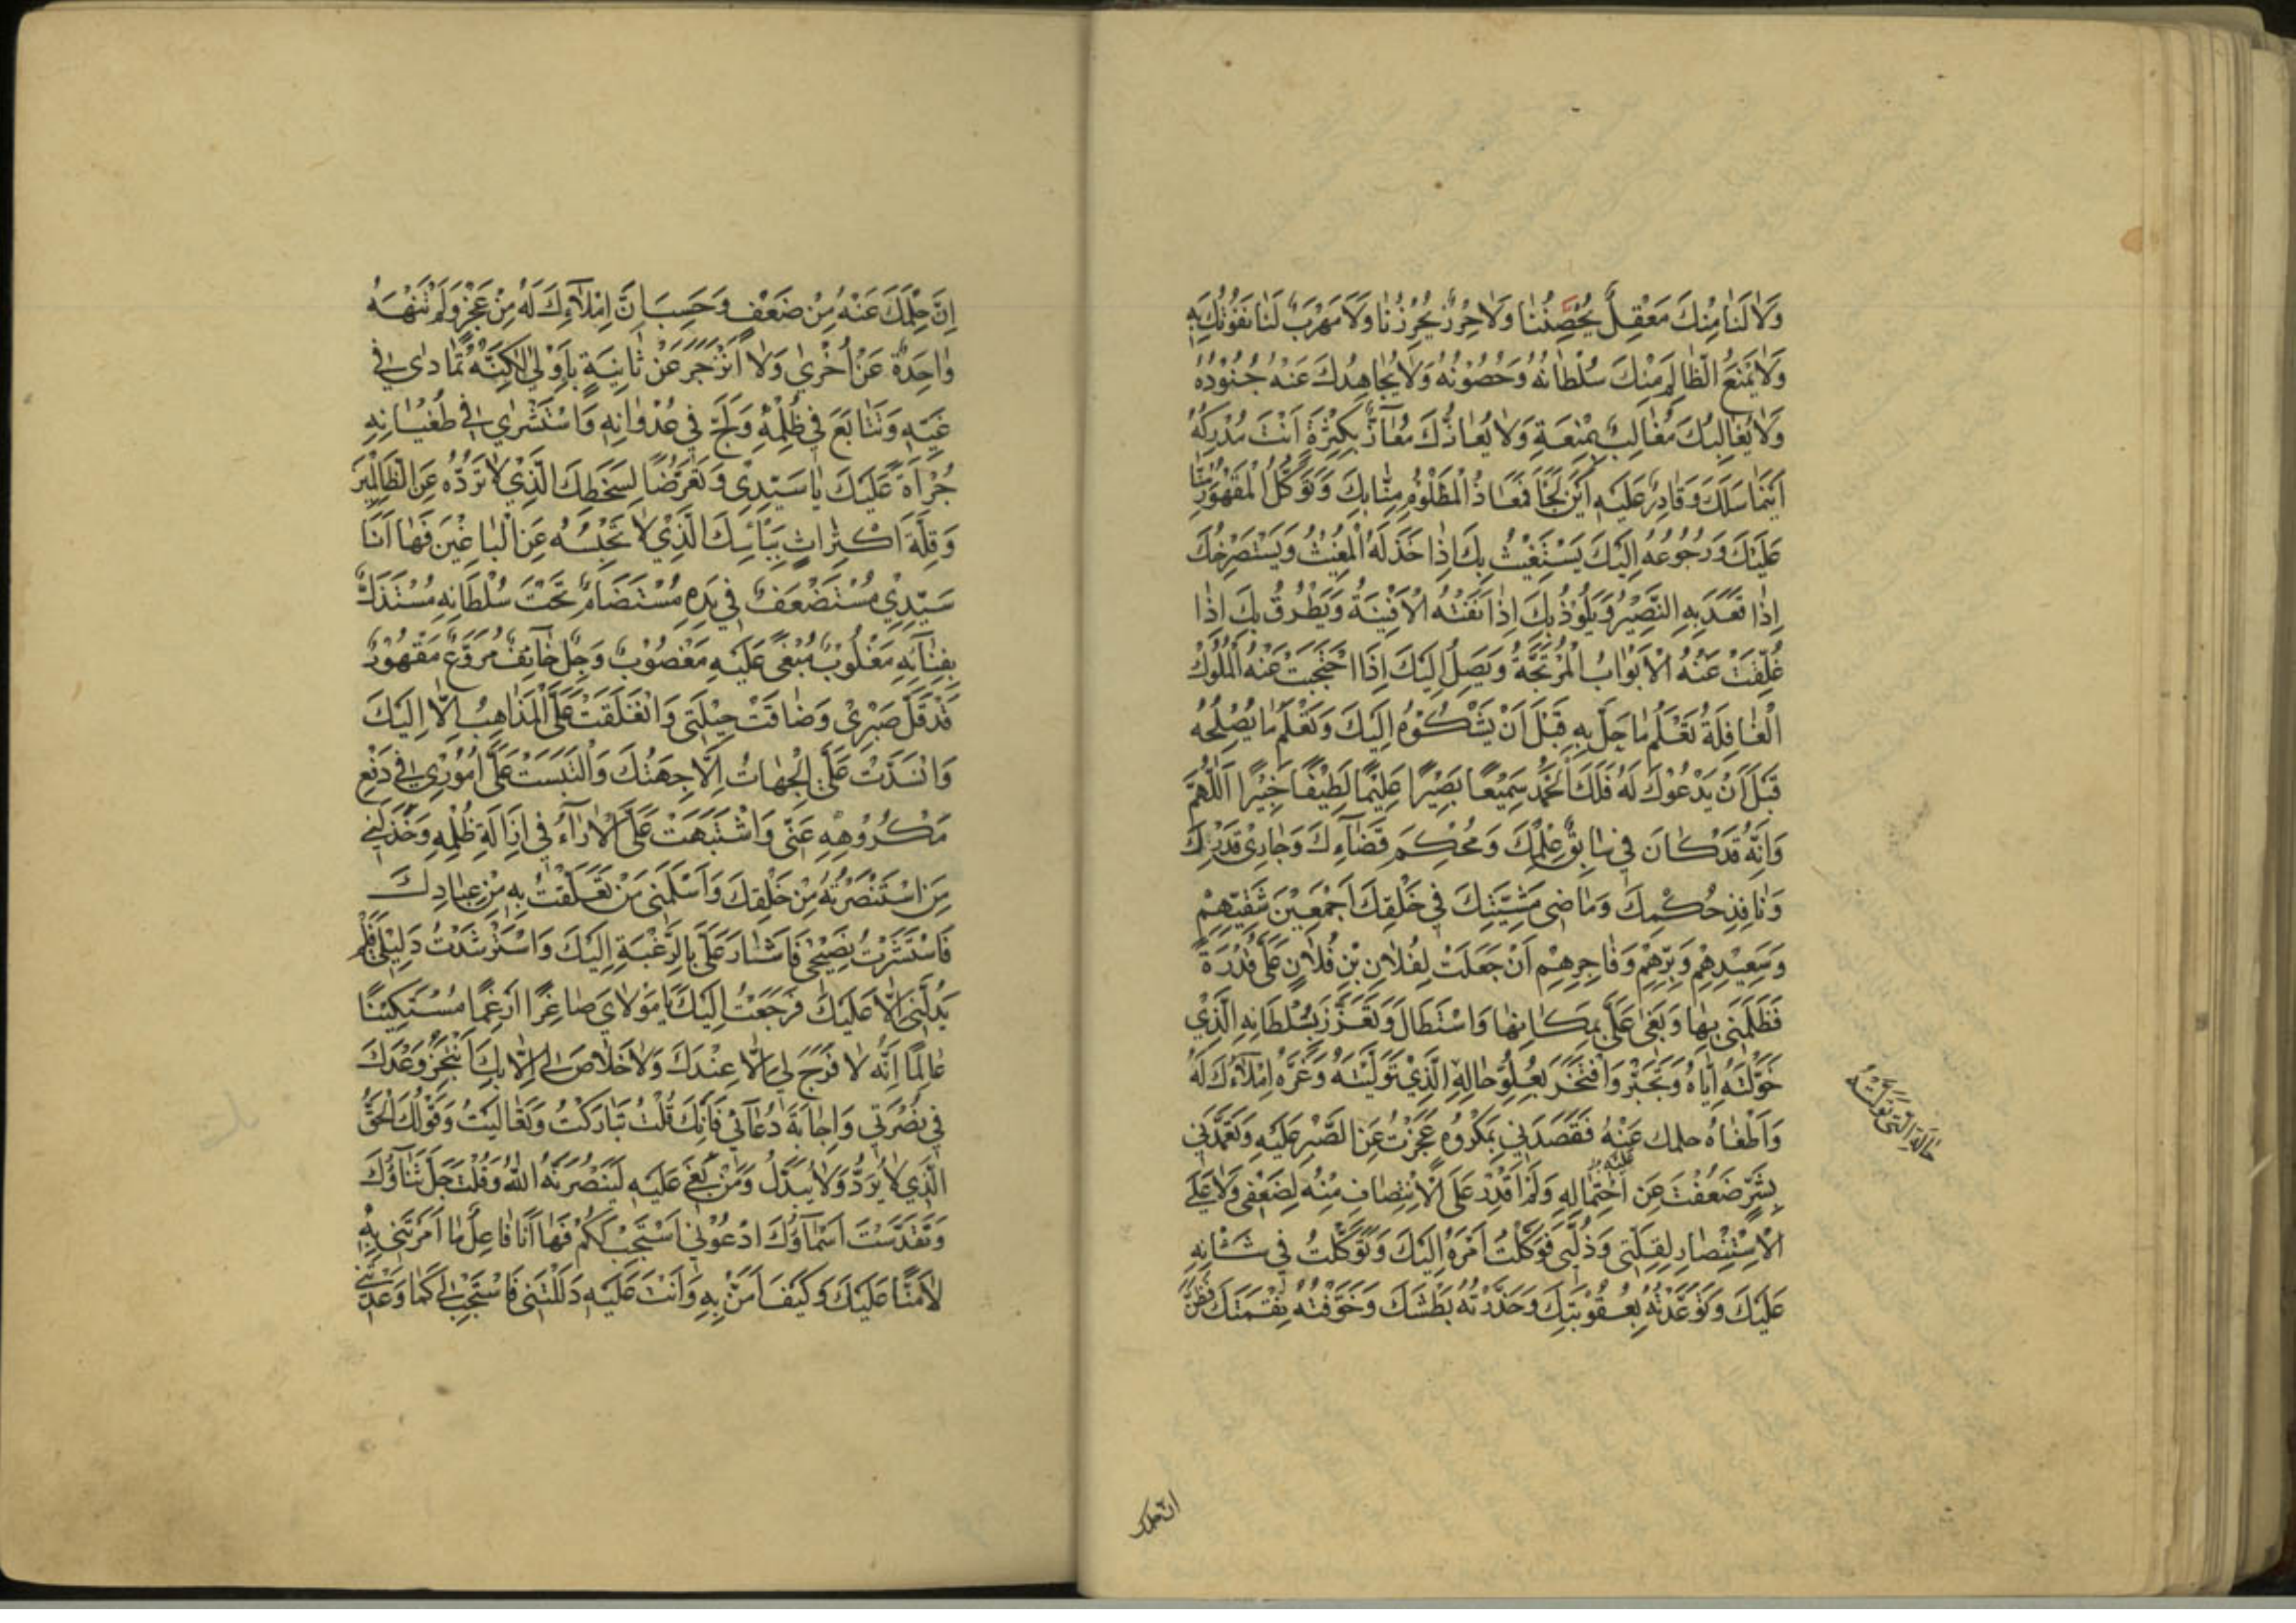 وَلَا لَنَا مِنْكَ مَعْقِلٌ يُحَصِّنُنَا وَلَا حِرْزٌ يُحْرِزُنَا وَلَا مَهْرَبٌ لَنَا نَفُوتُكَ بِهِ
وَلَا يَمْنَعُ الظَّالِمَ مِنْكَ سُلْطَانُهُ وَحُصُونُهُ وَلَا يُجَاهِدُكَ عَنْهُ جُنُودُهُ
وَلَا يُغَالِبُكَ مُغَالِبٌ بِمَنْعَةٍ وَلَا يُعَازُّكَ مُعَازٌّ بِكَثْرَةٍ اَنْتَ مُدْرِكُهُ
اَيْنَمَا سَلَكَ وَقَادِرٌ عَلَيْهِ اَيْنَ لَجَأَ فَمَعَاذُ الْمَظْلُومِ مِنَّا بِكَ وَتَوَكُّلُ الْمَقْهُورِ مِنَّا
عَلَيْكَ وَرُجُوعُهُ اِلَيْكَ يَسْتَغِيثُ بِكَ اِذَا خَذَلَهُ الْمُغِيثُ وَيَسْتَصْرِخُكَ
اِذَا قَعَدَ بِهِ النَّصِيْرُ وَيَلُوذُ بِكَ اِذَا نَفَتْهُ الْاَفْنِيَةُ وَيَطْرُقُ بِكَ اِذَا
غُلِّقَتْ عَنْهُ الْاَبْوَابُ الْمُرْتَجَّةُ وَيَصِلُ اِلَيْكَ اِذَا احْتَجَبَتْ عَنْهُ الْمُلُوكُ
الْغَافِلَةُ تَعْلَمُ مَا حَلَّ بِهِ قَبْلَ اَنْ يَشْكُوْهُ اِلَيْكَ وَتَعْلَمُ مَا يُصْلِحُهُ
قَبْلَ اَنْ يَدْعُوْكَ لَهُ فَلَكَ الْحَمْدُ سَمِيْعًا بَصِيْرًا عَلِيْمًا لَطِيْفًا خَبِيْرًا اَللّٰهُمَّ
وَاِنَّهُ قَدْ كَانَ فِي سَابِقِ عِلْمِكَ وَمُحْكَمِ قَضَاءِكَ وَجَارِي قَدَرِكَ
وَنَافِذِ حُكْمِكَ وَمَاضِي مَشِيَّتِكَ فِي خَلْقِكَ اَجْمَعِيْنَ شَقِيِّهِمْ
وَسَعِيْدِهِمْ وَبَرِّهِمْ وَفَاجِرِهِمْ اَنْ جَعَلْتَ لِفُلَانِ بْنِ فُلَانٍ عَلَيَّ قُدْرَةً
فَظَلَمَنِي بِهَا وَبَغَى عَلَيَّ بِمَكَانِهَا وَاسْتَطَالَ وَتَعَزَّزَ بِسُلْطَانِهِ الَّذِيْ
خَوَّلْتَهُ اِيَّاهُ وَتَجَبَّرَ وَافْتَخَرَ بِعُلُوِّ حَالِهِ الَّذِيْ تَوَلَّيْتَهُ وَغَرَّهُ اِمْلَاءُكَ لَهُ
وَاَطْغَاهُ حلمك عَنْهُ فَقَصَدَنِي بِمَكْرُوهٍ عَجَزْتُ عَنِ الصَّبْرِ عَلَيْهِ وَتَعَمَّدَنِي
بِشَرٍّ ضَعُفْتُ عَنِ احْتِمَالِهِ وَلَمْ اَقْدِرْ عَلَى الْاِنْتِصَافِ مِنْهُ لِضَعْفِي وَلَا عَلَى
الْاِسْتِنْصَارِ لِقِلَّتِي وَذُلِّي فَوَكَلْتُ اَمْرَهُ اِلَيْكَ وَتَوَكَّلْتُ فِي شَانِهِ
عَلَيْكَ وَتَوَعَّدْتُهُ بِعُقُوبَتِكَ وَحَذَّرْتُهُ بَطْشَكَ وَخَوَّفْتُهُ نِقْمَتَكَ فَظَنَّ
ان حلمك
اِنَّ حِلْمَكَ عَنْهُ مِنْ ضَعْفٍ وَحَسِبَ اَنَّ اِمْلَاءِكَ لَهُ مِنْ عَجْزٍ وَلَمْ تَنْهَهُ
وَاحِدَةٌ عَنْ اُخْرٰى وَلَا انْزَجَرَ عَنْ ثَانِيَةٍ بِاُوْلٰى لٰكِنَّهُ تَمَادٰى فِي
غَيِّهِ وَتَتَابَعَ فِي ظُلْمِهِ وَلَجَّ فِي عُدْوَانِهِ وَاسْتَشْرٰى فِي طُغْيَانِهِ
جُرْاَةً عَلَيْكَ يَا سَيِّدِي وَتَعَرُّضًا لِسَخَطِكَ الَّذِيْ لَا تَرُدُّهُ عَنِ الظَّالِمِيْنَ
وَقِلَّةَ اكْتِرَاثٍ بِبَأْسِكَ الَّذِيْ لَا تَحْبِسُهُ عَنِ الْبَاغِيْنَ فَهَا اَنَا
سَيِّدِيْ مُسْتَضْعَفٌ فِي يَدِهِ مُسْتَضَامٌ تَحْتَ سُلْطَانِهِ مُسْتَذَلٌّ
بِفِنَائِهِ مَغْلُوبٌ مُبْغًى عَلَيْهِ مَغْصُوبٌ وَجِلٌ خَائِفٌ مُرَوَّعٌ مَقْهُورٌ
قَدْ قَلَّ صَبْرِيْ وَضَاقَتْ حِيْلَتِي وَانْغَلَقَتْ عَلَيَّ الْمَذَاهِبُ اِلَّا اِلَيْكَ
وَانْسَدَّتْ عَلَيَّ الْجِهَاتُ اِلَّا جِهَتُكَ وَالْتَبَسَتْ عَلَيَّ اُمُوْرِيْ فِي دَفْعِ
مَكْرُوْهِهِ عَنِّي وَاشْتَبَهَتْ عَلَيَّ الْاٰرَاءُ فِي اِزَالَةِ ظُلْمِهِ وَخَذَلَنِي
مَنِ اسْتَنْصَرْتُهُ مِنْ خَلْقِكَ وَاَسْلَمَنِي مَنْ تَعَلَّقْتُ بِهِ مِنْ عِبَادِكَ
فَاسْتَشَرْتُ نَصِيْحِي فَاَشَارَ عَلَيَّ بِالرَّغْبَةِ اِلَيْكَ وَاسْتَرْشَدْتُ دَلِيْلِي فَلَمْ
يَدُلَّنِي اِلَّا عَلَيْكَ فَرَجَعْتُ اِلَيْكَ يَا مَوْلَايَ صَاغِرًا رَاغِمًا مُسْتَكِيْنًا
عَالِمًا اَنَّهُ لَا فَرَجَ لِي اِلَّا عِنْدَكَ وَلَا خَلَاصَ لِي اِلَّا بِكَ اَنْتَجِزُ وَعْدَكَ
فِي نُصْرَتِي وَاِجَابَةَ دُعَائِي فَاِنَّكَ قُلْتَ تَبَارَكْتَ وَتَعَالَيْتَ وَقَوْلُكَ الْحَقُّ
الَّذِي لَا يُرَدُّ وَلَا يُبَدَّلُ وَمَنْ بُغِيَ عَلَيْهِ لَيَنْصُرَنَّهُ اللّٰهُ وَقُلْتَ جَلَّ ثَنَاؤُكَ
وَتَقَدَّسَتْ اَسْمَاؤُكَ ادْعُوْنِي اَسْتَجِبْ لَكُمْ فَهَا اَنَا فَاعِلٌ مَا اَمَرْتَنِي بِهِ
لَا مَنًّا عَلَيْكَ وَكَيْفَ اَمُنُّ بِهِ وَاَنْتَ عَلَيْهِ دَلَلْتَنِي فَاسْتَجِبْ لِي كَمَا وَعَدْتَنِي